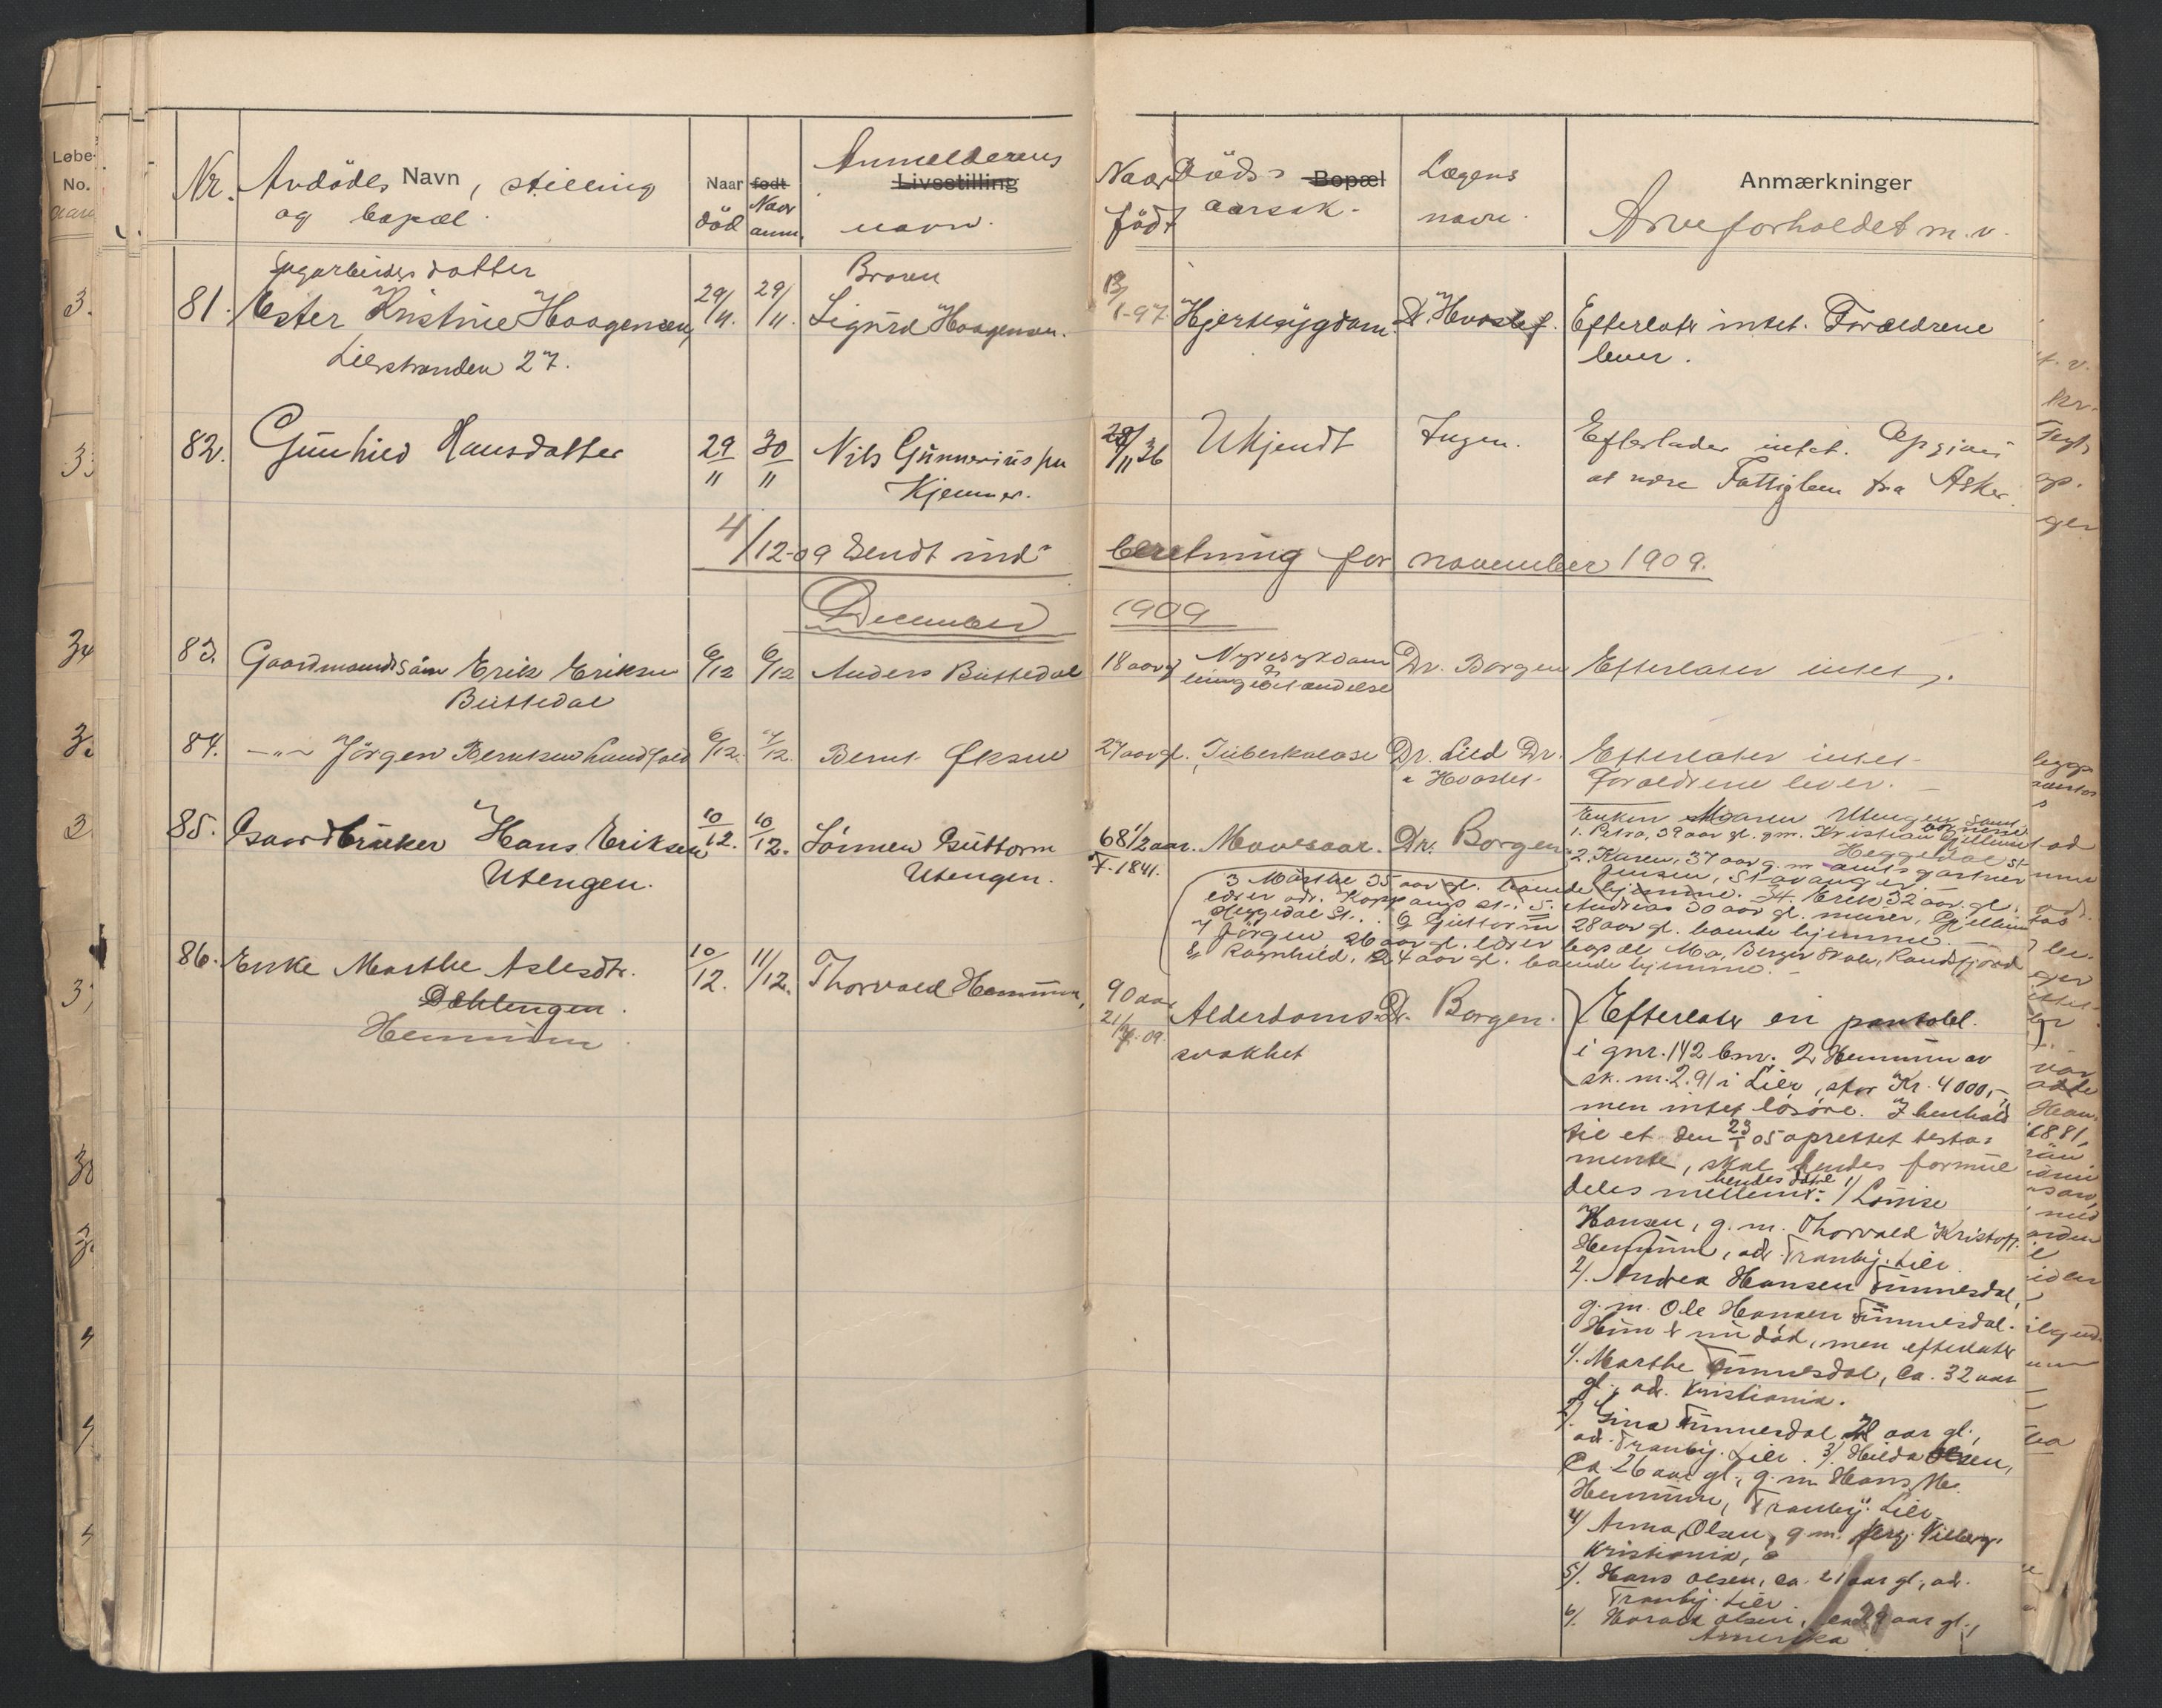 Løbe-
No.
Nr.
Avdödes Navn, stilling
og bopæl.
Naar født
död
Naar
anm.
Anmelderens
Livsstilling
navn.
Naar
födt
Döds-
Bopæl
aarsak.
Lægens
navn.
Anmærkninger
Arveforholdet m.v.
datter
81. Ester Kristine Haagensen,
Lierstranden 27.
29/11.
29/11.
Broren
Sigurd Haagensen.
13/1-97.
Hjertesygdom.
Dr. Hvoslef.
Efterlater intet. Forældrene
lever.
82. Gunhild Hansdatter
29/11
30/11
Nils Gunnerius
Kjenner.
28/11 36
Ukjendt
Ingen.
Efterlader intet. Opgives
at være Fattiglem fra Asker.
4/12-09 Sendt ind beretning for november 1909.
December 1909
83. Gaardmandssön Erik Eriksen
Büttedal
6/12
6/12
Anders Büttedal
18 aar gl
Nyresykdom
& lungebetændelse
Dr. Borgen
Efterlater intet.
84. -"- Jörgen Berntsen
6/12.
7/12.
Bernt
27 aar gl.
Tuberkulose
Dr. Lied Dr.
" Hvoslef
Efterlater intet
Forældrene lever.
85. Gaardbruker Hans Eriksen
Utengen.
10/12.
10/12.
Sönnen Guttorm
Utengen.
68 1/2 aar.
F. 1841.
Mavesaar.
Dr. Borgen
Enken Maren Utengen samt
1. Petra, 39 aar gl. gm. Kristian Gjellum
Heggedal st
2. Karen, 37 aar g. m. amtsgartner
Jensen, Stavanger
3 Marthe 35 aar gl. hjemme. 4. Erik 32 aar gl.
eller adr. Koppangs st. 5. Andreas 30 aar gl. murer, Gjellum
Heggedal St. 6 Guttorm 28 aar gl. hjemme.
7 Jörgen 26 aar gl. eller bopæl Mo, Randsfjord
8, Ragnhild, 24 aar gl. hjemme.
86. Enke Marthe Aslesdtr.
Dæhlengen.
Hennum
10/12.
11/12.
Thorvald Hennum,
90 aar
21/7-09.
Alderdoms-
svakhet
Dr. Borgen.
Efterlater en pantobl.
i gnr. 142 bnr. 2 Hennum av
sk. m. 2.91 i Lier, stor Kr. 4000,-,
men intet lösöre. I henhold
til et den 23/1 05 oprettet testa-
mente, skal hendes formue
deles mellem hendes : 1/ Lovise
Hansen, g. m. Thorvald Kristoff.
Hennum, adr. Tranby. Lier
2/. Andrea Hansen Tünnesdal,
g. m. Ole Hansen Tünnesdal.
Hun er nu död, men efterlater
1/. Marthe Tünnesdal, ca. 32 aar
gl., ad. Kristiania.
2/. Gina Tünnesdal, aar gl.,
ad. Tranby. Lier. 3/. Hilda Olsen,
ca. 26 aar gl., g. m. Hans
Hennum, Tranby. Lier
4/ Anna Olsen, g. m.
Kristiania,
5/. Hans Olsen, ca. 21 aar gl., ad.
Tranby. Lier.
6/. Olsen, ca 29 aar gl.,
Amerika